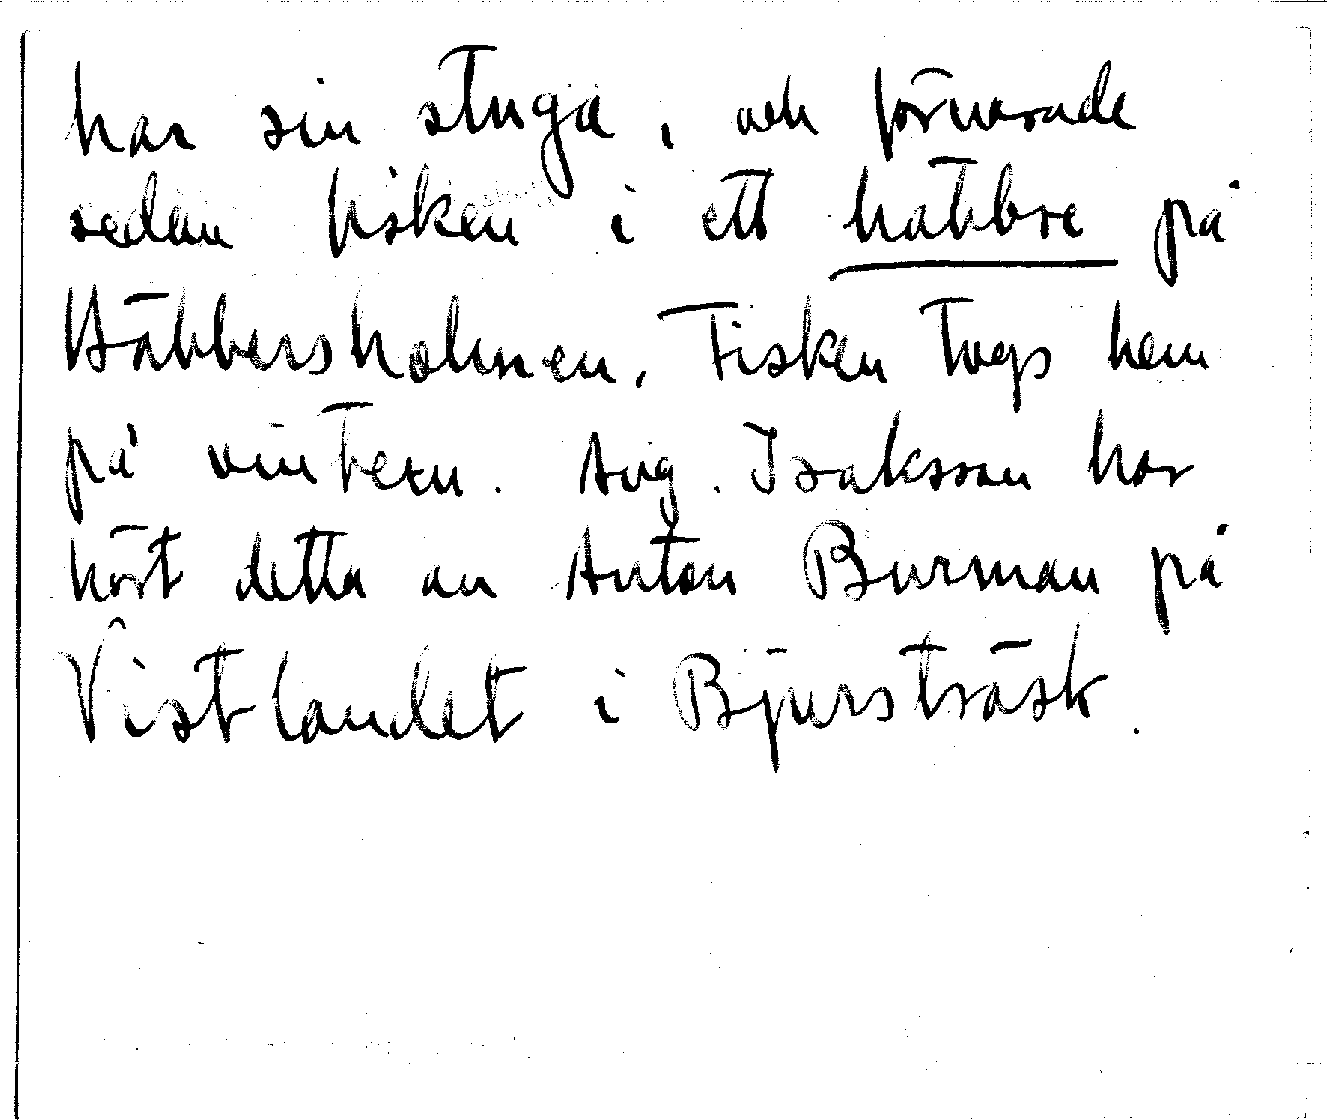 har sin stuga, och förvarade
sedan fisken i ett häbbre på
Häbbersholmen. Fisken togs hem
på vintern. Aug. Isaksson har
hört detta av Anton Burman på
Vistlandet i Bjursträsk.